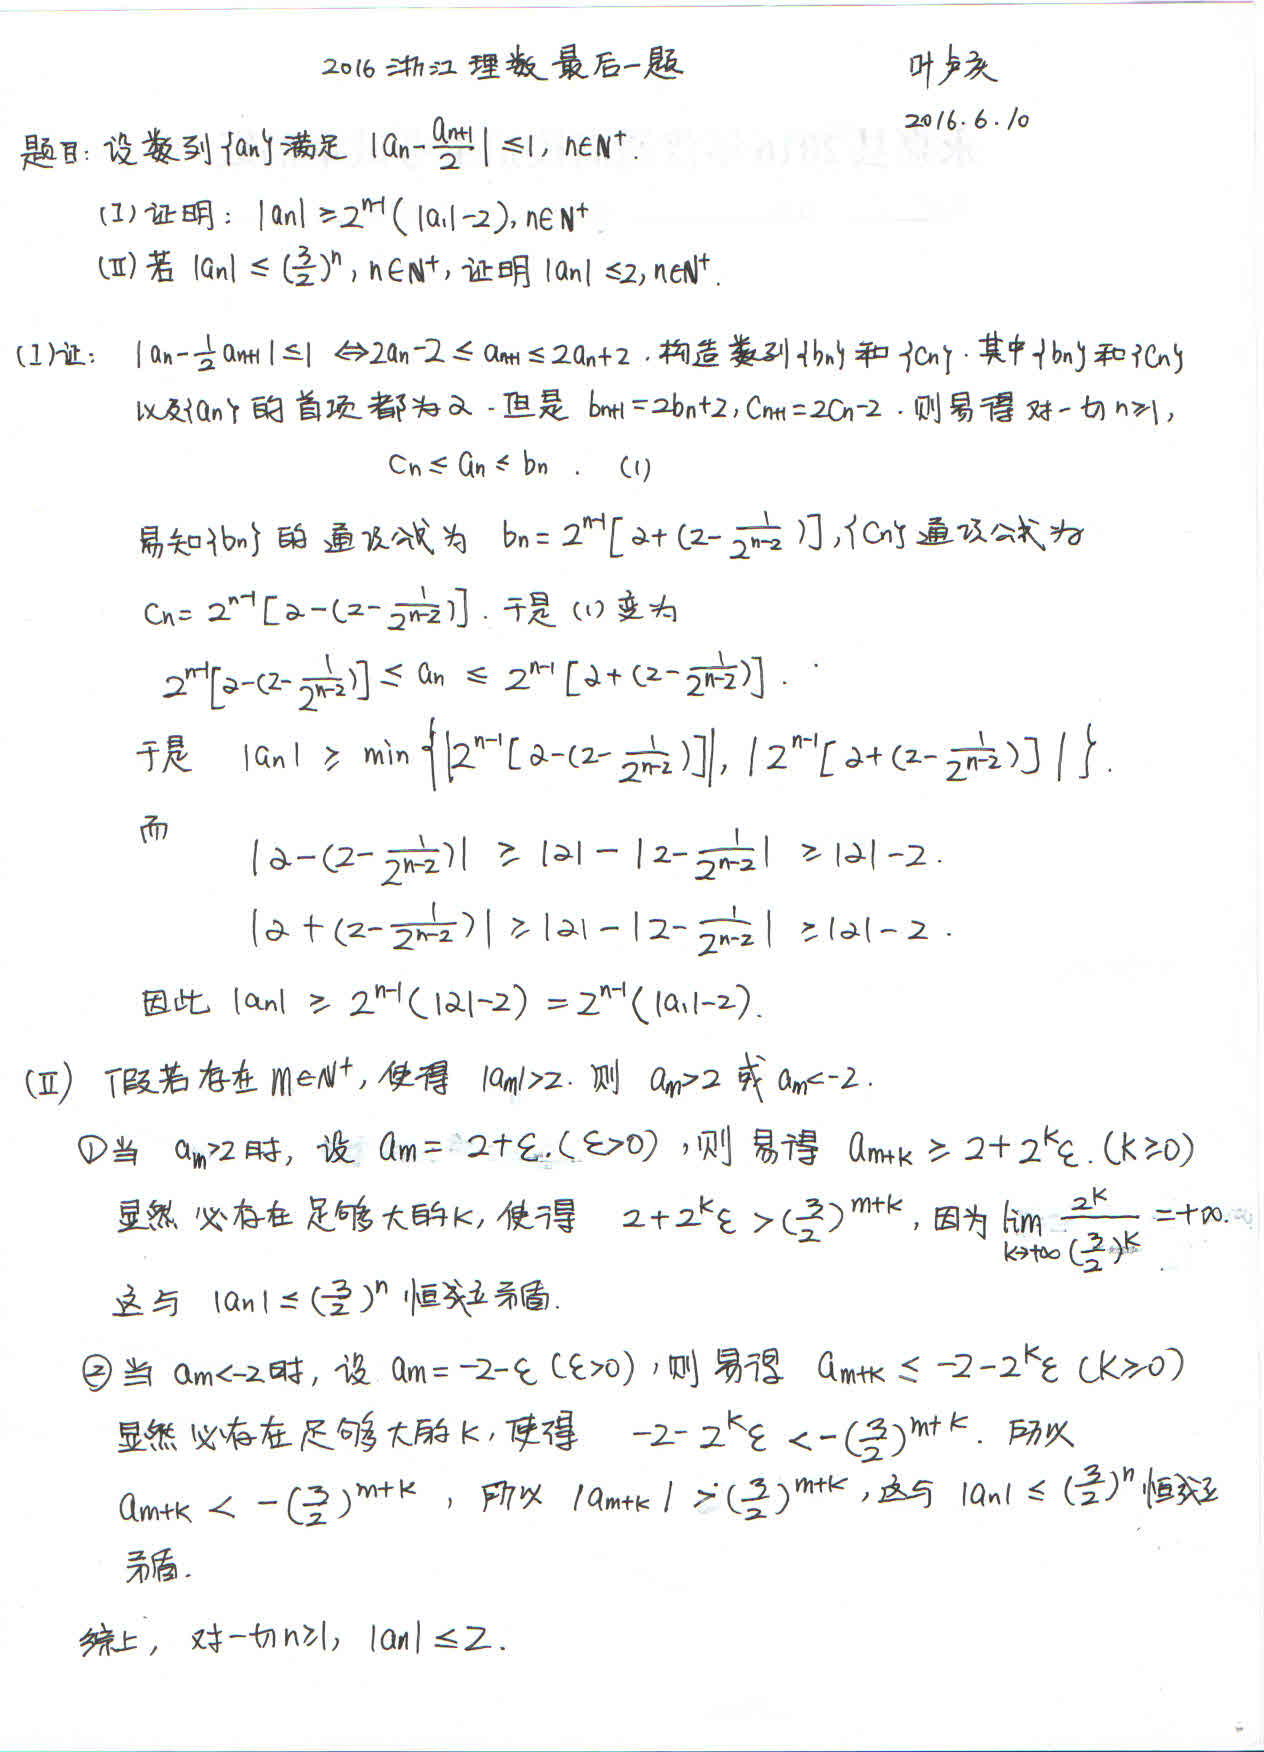 2016浙江理数最后一题 叶卢庆
2016.6.10
题目: 设数列{an}满足 |an - an+1/2| ≤ 1, n∈N⁺.
(I) 证明: |an| ≥ 2^(n-1)(|a₁|-2), n∈N⁺
(II) 若 |an| ≤ (3/2)^n, n∈N⁺, 证明 |an| ≤ 2, n∈N⁺.
(I)证: |an - 1/2 an+1| ≤ 1 ⇔ 2an-2 ≤ an+1 ≤ 2an+2. 构造数列{bn}和{cn}. 其中{bn}和{cn}
以及{an}的首项都为α. 但是 bn+1=2bn+2, cn+1=2cn-2. 则易得对一切n≥1,
cn ≤ an ≤ bn. (1)
易知{bn}的通项公式为 bn = 2^(n-1)[α+(2-1/2^(n-2))], {cn}通项公式为
cn = 2^(n-1)[α-(2-1/2^(n-2))]. 于是(1)变为
2^(n-1)[α-(2-1/2^(n-2))] ≤ an ≤ 2^(n-1)[α+(2-1/2^(n-2))].
于是 |an| ≥ min{|2^(n-1)[α-(2-1/2^(n-2))]|, |2^(n-1)[α+(2-1/2^(n-2))]|}.
而
|α-(2-1/2^(n-2))| ≥ |α| - |2-1/2^(n-2)| ≥ |α|-2.
|α+(2-1/2^(n-2))| ≥ |α| - |2-1/2^(n-2)| ≥ |α|-2.
因此 |an| ≥ 2^(n-1)(|α|-2) = 2^(n-1)(|a₁|-2).
(II) 假若存在m∈N⁺, 使得 |am|>2. 则 am>2 或 am<-2.
①当 am>2时, 设 am = 2+ε. (ε>0), 则易得 am+k ≥ 2+2^k ε. (k≥0)
显然必存在足够大的k, 使得 2+2^k ε > (3/2)^(m+k), 因为 lim k→+∞ 2^k/(3/2)^k = +∞.
这与 |an| ≤ (3/2)^n 恒成立矛盾.
②当 am<-2时, 设 am = -2-ε (ε>0), 则易得 am+k ≤ -2-2^k ε (k≥0)
显然必存在足够大的k, 使得 -2-2^k ε < -(3/2)^(m+k). 所以
am+k < -(3/2)^(m+k), 所以 |am+k| > (3/2)^(m+k), 这与 |an| ≤ (3/2)^n 恒成立
矛盾.
综上, 对一切n≥1, |an| ≤ 2.